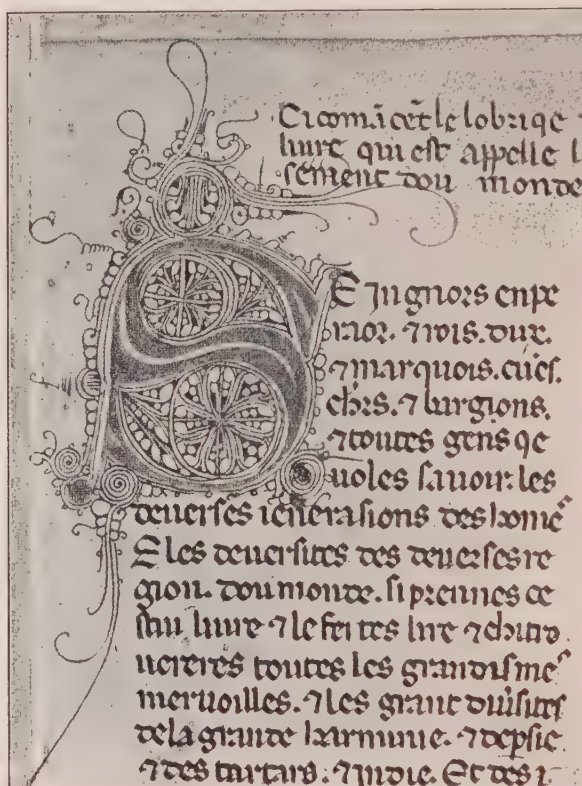 Ci comācēt le lobriqe
liure qui est appelle l
sement dou monde
SEingnors enpe
raor. ⁊ rois. dux.
⁊ marquois. cues.
⁊ burgions.
⁊ toutes gens qe
uoles sauoir. les
deuerses ienerasions des home
E les deuersites des deuerses re
gion. dou monde. si prennes ce
stui liure ⁊ le feites lire ⁊ chi tro
uereres toutes les grandisme
meruoilles. ⁊ les grant
de la grande harminie. ⁊ de psie
⁊ des tartars. ⁊ indie. Et des